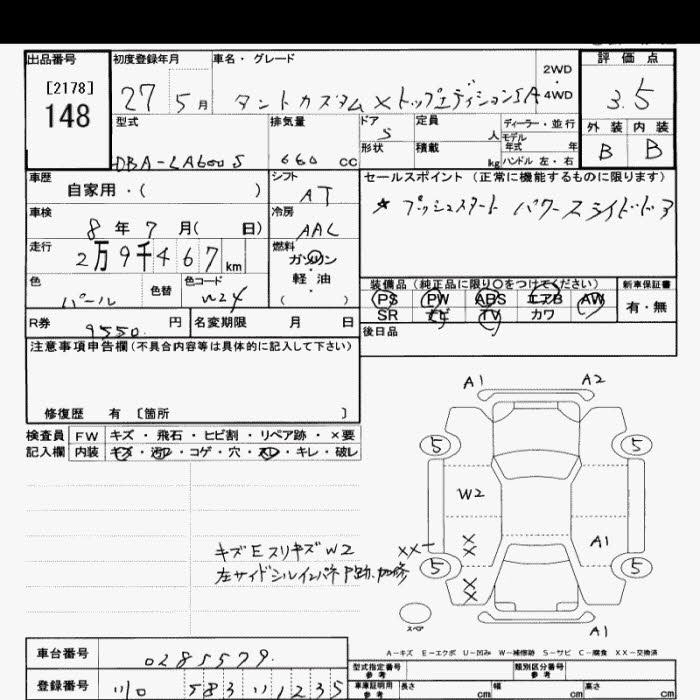 出品番号
[2178]
148
初度登録年月
27 5月
車名・グレード
タントカスタム×トップエディションSA
2WD
・
4WD
評価点
3.5
外装 内装
B B
型式
DBA-LA600S
排気量
660 CC
ドア
5
定員
人
ディーラー・並行
モデル
年式 年
形状
積載
kg
ハンドル 左・右
車歴
自家用・( )
シフト
AT
セールスポイント(正常に機能するものに限ります)
★ プッシュスタート パワースライドドア
車検
8年7月( 日)
冷房
AAC
走行
2万9千467km
燃料
ガソリン
軽油
( )
色
パール
色替
色コード
W24
装備品(純品に限り○をつけてください)
PS PW ABS エアB AW
SR ナビ TV カワ
新車保証書
有・無
R券
9550 円
名変期限 月 日
後日品
注意事項申告欄(不具合内容等は具体的に記入して下さい)
修復歴 有 〔箇所 〕
検査員 FW キズ・飛石・ヒビ割・リペア跡・×要
記入欄 内装 キズ・汚れ・コゲ・穴・スレ・キレ・破レ
A1 A2
5 5
W2
A1
××
5 5
××
A1
スペア
キズE スリキズW2 ××-
左サイドシルインパネ
A-キズ E-エクボ U-凹み W-補修跡 S-サビ C-腐食 XX-交換済
車台番号
0285579
登録番号
583 い1235
型式指定番号
参考
類別区分番号
参考
車庫証明用
参考
長さ cm 幅 cm 高さ cm